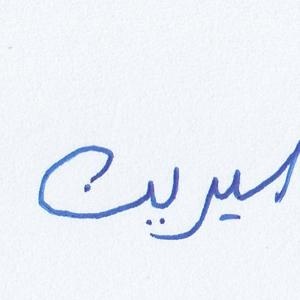 سيرين